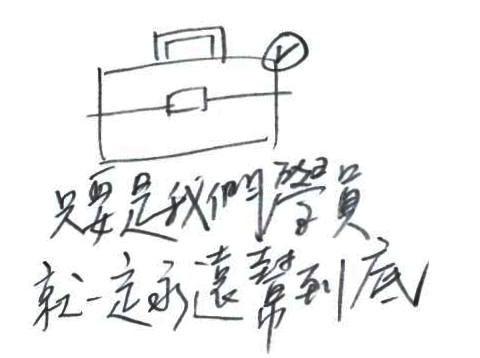 只要是我們學員
就一定永遠幫到底